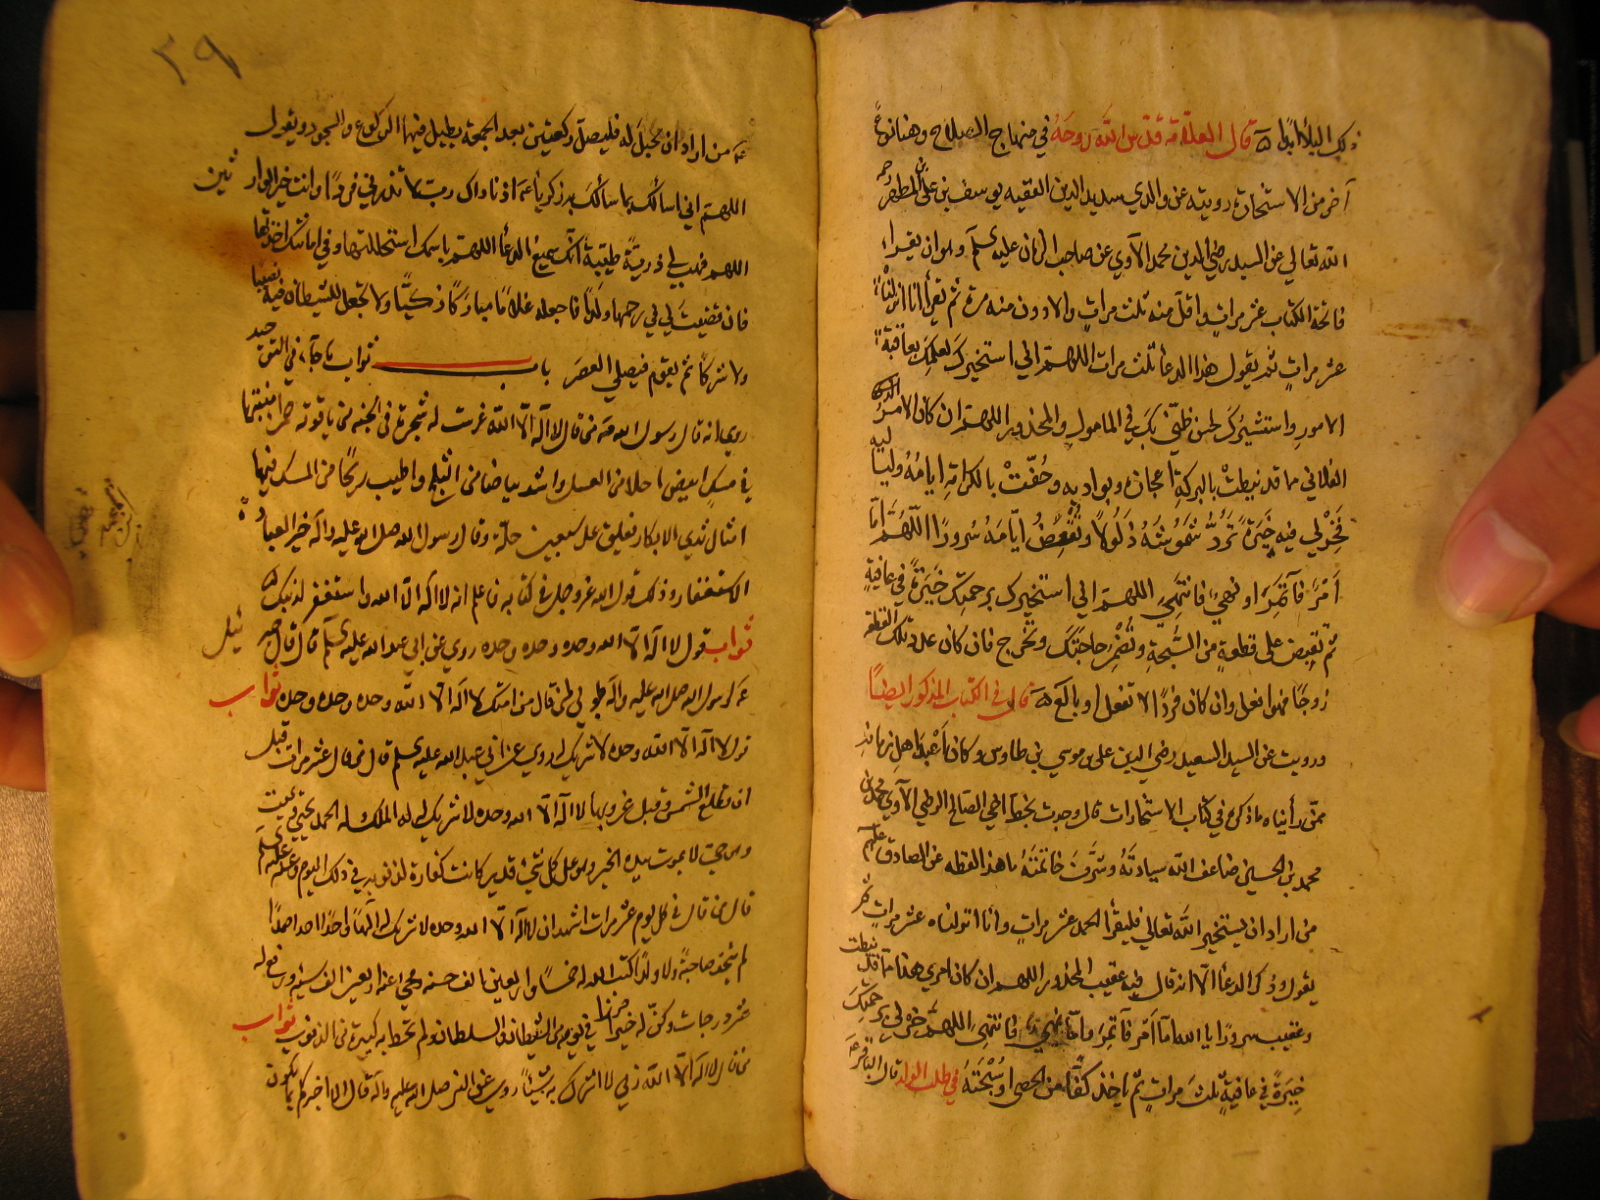 ذلك البلاء ابدا قال العلامة قدس الله روحه في منهاج الصلاح وهنا نوع
آخر من الاستخارة رويته عن والدي سديد الدين الفقيه يوسف بن علي بن المطهر رحمه
الله تعالى عن السيد رضي الدين محمد الآوي عن صاحب الزمان عليه السلم وهو ان يقراء
فاتحة الكتاب عشر مرات واقل منه ثلث مرات والادون منه مرة ثم يقرأ انا انزلناه
عشر مرات ثم يقول هذا الدعا ثلث مرات اللهم اني استخيرك لعلمك بعاقبة
الامور واستشيرك لحسن ظني بك في المامول والمحذور اللهم ان كان الامر
الفلاني مما قد نيطت بالبركة اعجازه وبواديه وحفت بالكرامة ايامه ولياليه
فخر لي فيه خيرة ترد شموسه ذلولا وتقعض ايامه سرورا اللهم اما
امر فآتمر او نهي فانتهي اللهم اني استخيرك برحمتك خيرة في عافية
ثم تقبض على قطعة من السبحة وتضمر حاجتك وتخرج فان كان عدد تلك القطعة
زوجا فهو افعل وان كان فردا لا تفعل او بالعكس قال في الكتاب المذكور ايضا
ورويت عن السيد السعيد رضي الدين علي بن موسى بن طاوس وكان اعبد اهل زمانه
ممن رأيناه ما ذكره في كتاب الاستخارات قال وجدت بخط اخي الصالح الرضي الآوي محمد بن
محمد بن الحسين ضاعف الله سيادته وشرف خاتمته ما هذا لفظه عن الصادق عليه السلم
من اراد ان يستخير الله تعالى فليقرأ الحمد عشر مرات وانا انزلناه عشر مرات ثم
يقول وذكر الدعا الا انه قال فيه عقيب المحذور اللهم ان كان امري هذا مما قد نيطت
وعقيب سرورا يا الله اما امر فآتمر واما نهي فانتهي اللهم خر لي برحمتك
خيرة في عافية ثلث مرات ثم ياخذ كفا من الحصى او سبحته في طلب الولد قال الباقر
من اراد ان يحبل له فليصل ركعتين بعد الجمعة يطيل فيها الركوع والسجود ويقول
اللهم اني اسألك بما سألك به زكريا اذ ناداك رب لا تذرني فردا وانت خير الوارثين
اللهم فهب لي ذرية طيبة انك سميع الدعا اللهم باسمك استحللتها وفي امانتك اخذتها
فان قضيت لي في رحمها ولدا فاجعله غلاما مباركا زكيا ولا تجعل للشيطان فيه نصيبا
ولا شركا ثم يقوم فيصلي العصر باب ثواب ما جاء في التوحيد
روي انه قال رسول الله من قال لا اله الا الله غرست له شجرة في الجنة من ياقوتة حمرا منبتها
في مسك ابيض احلا من العسل واشد بياضا من الثلج واطيب ريحا من المسك فيها
امثال ثدي الابكار تعلق على سبعين حلة وقال رسول الله صلى الله عليه واله خير العبادة
الاستغفار وذلك قول الله عز وجل في كتابه فاعلم انه لا اله الا الله واستغفر لذنبك
ثواب قول لا اله الا الله وحده وحده وحده روي عن ابي عبد الله عليه السلم قال قال جبرئيل
لرسول الله صلى الله عليه واله طوبى لمن قال من امتك لا اله الا الله وحده وحده وحده ثواب
قول لا اله الا الله وحده لا شريك له روي عن ابي عبد الله عليه السلم قال من قال عشر مرات قبل
ان تطلع الشمس وقبل غروبها لا اله الا الله وحده لا شريك له له الملك وله الحمد يحيي ويميت
وهو حي لا يموت بيده الخير وهو على كل شئ قدير كانت كفارة لذنوبه في ذلك اليوم وعنه عليه السلم
قال من قال في كل يوم عشر مرات اشهد ان لا اله الا الله وحده لا شريك له الها واحدا احدا صمدا
لم يتخذ صاحبة ولا ولدا كتب الله له خمسا واربعين الف حسنة ومحى عنه اربعين الف سيئة ورفع له
عشر درجات وكن له حرزا في يومه من الشيطان والسلطان ولم تحط به كبيرة من الذنوب ثواب
من قال لا اله الا الله ربي لا اشرك به شيئا روي عن النبي صلى الله عليه واله قال الا اخبركم بما يكون
٣٩